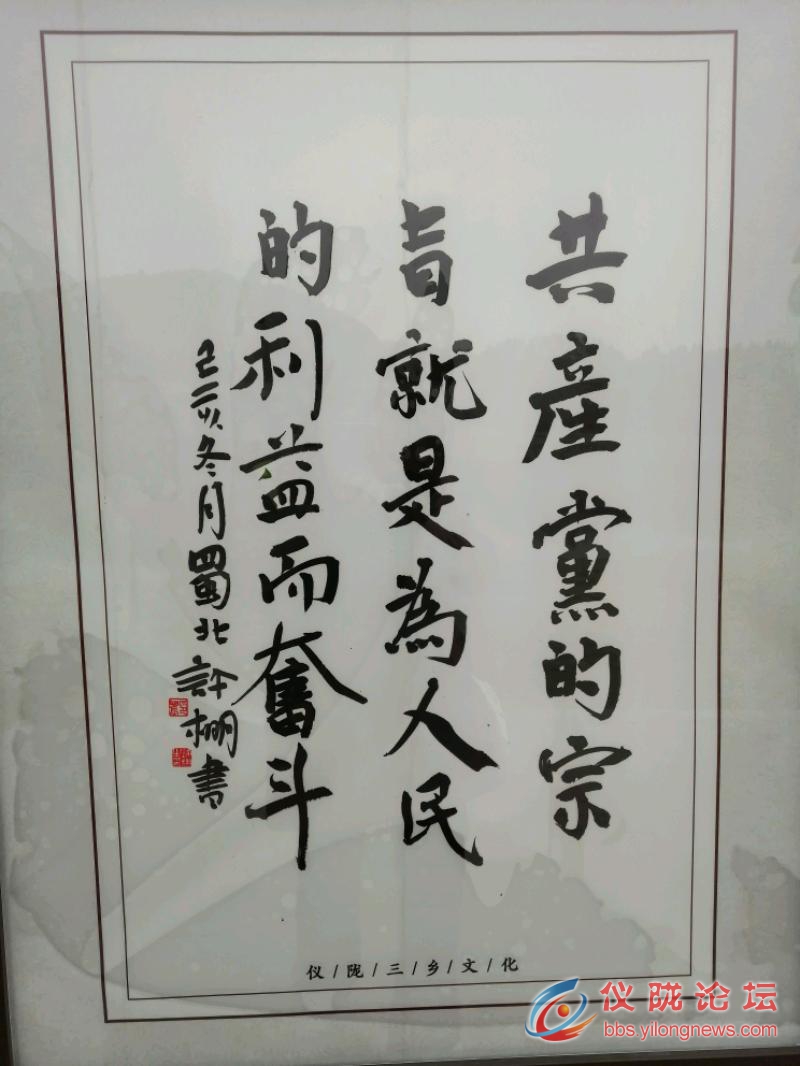 共産黨的宗
旨就是為人民
的利益而奮斗
己亥冬月蜀北許棚書
仪/陇/三/乡/文/化
仪陇论坛
bbs.yilongnews.com